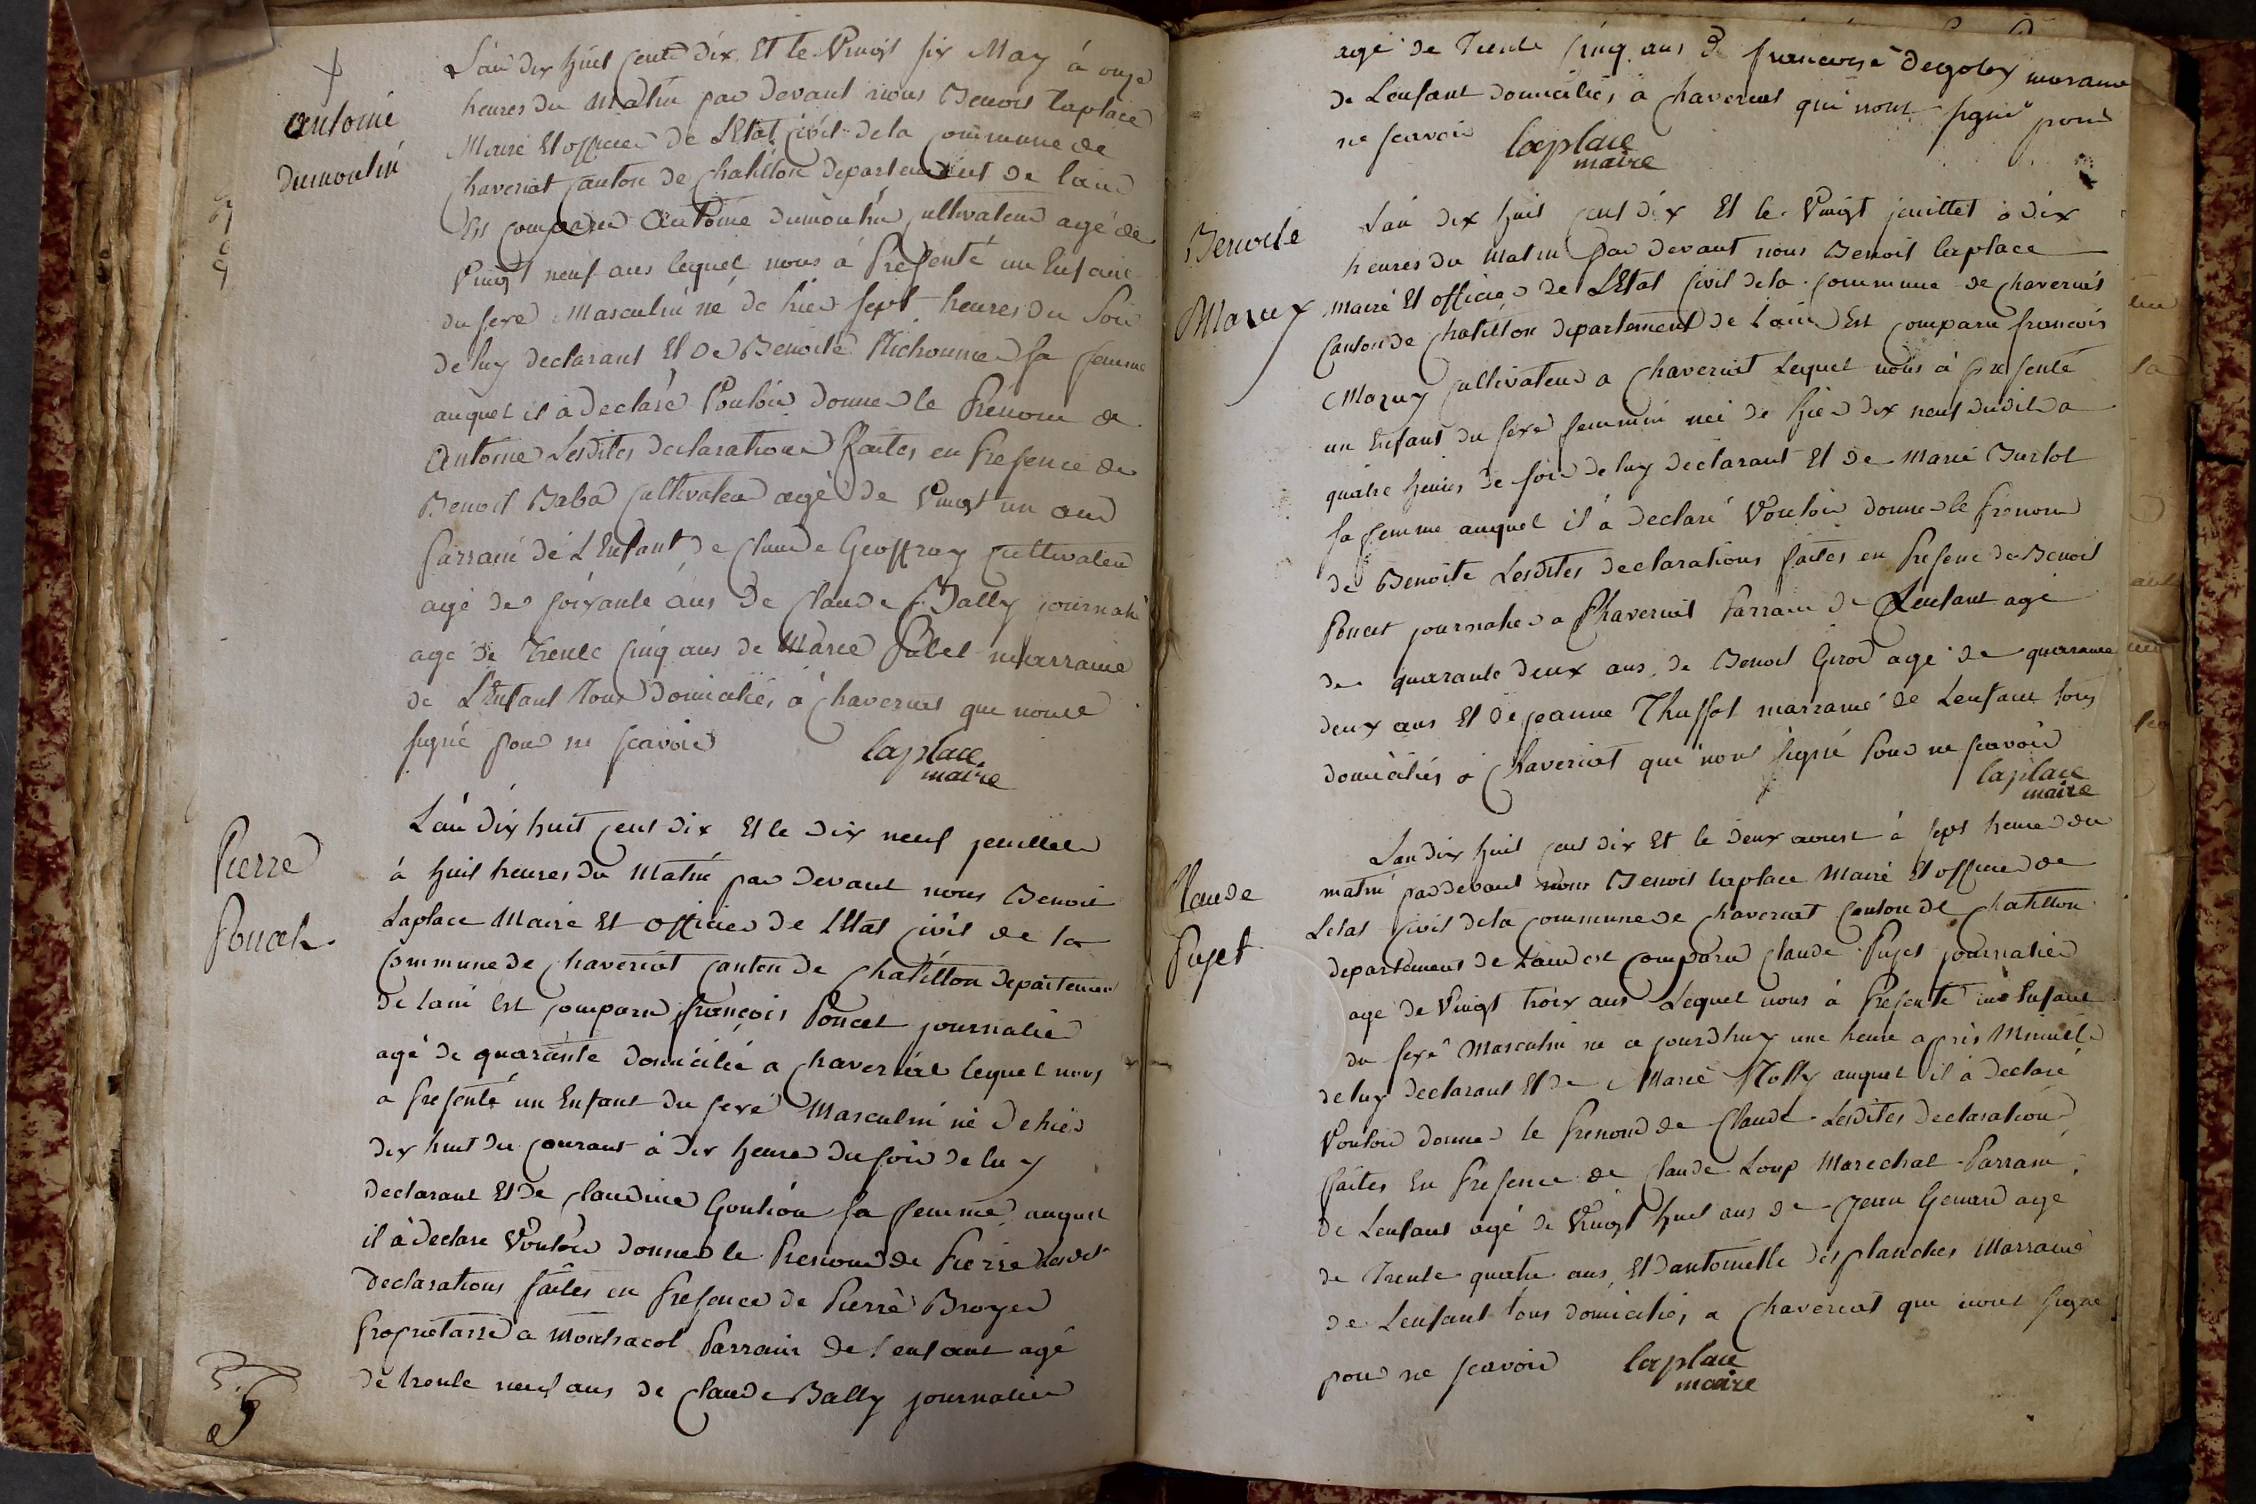 Antoine
dumoulin
L'an dix huit cent dix Et le Vingt six May à onze
heures du Matin par devant nous Benoit laplace
Maire Et officier de L'Etat Civil de la Commune de
Chaveriat Canton de Chatillon departement de lain
Est comparu Antoine dumoulin cultivateur agé de
Vingt neuf ans lequel nous à Presenté un Enfant
du sexe Masculin né de hier sept heures du Soir
de luy declarant Et De Benoite sa femme
auquel il à declaré Vouloir donner le Prenom de
Antoine Lesdites declarations faites en Presence de
Benoit Baba cultivateur agé de Vingt un ans
Parrain de L'Enfant de Claude Geoffray cultivateur
agé de soixante ans De Claude Bally journali
agé de Trente cinq ans de Marie marraine
de L'Enfant Tous domiciliés à Chaveriat qui nont
signé pour ne scavoir laplace
maire
Pierre
Poncet
L'an dix huit cent dix Et le dix neuf jeuillet
à huit heures du Matin par devant nous Benoit
Laplace Maire Et officier de L'Etat Civil de la
Commune de Chaveriat Canton de Chatillon departement
de lain Est comparu françois Poncet journalier
agé de quarante domicilié a Chaveriat lequel nous
a presenté un Enfant du sexe Masculin né de hier
dix huit du courant à dix heure du soir de luy
declarant Et de Claudine Goution sa femme auquel
il à declare Vouloir donner le Prenom de Pierre Lesdit
declarations faites en Presence de Pierre Broyer
Proprietaire a Montracol Parrain de lenfant agé
de trente neuf ans de Claude Bally journalier
agé de Trente cinq ans De francoise degoley maraine
de Lenfant domiciliés à Chaveriat qui nont signé pour
ne scavoir laplace
maire
Benoite
Mazuy
L'an dix huit cent dix Et le Vingt jeuillet à dix
heures du Matin par devant nous Benoit laplace
maire Et officier de L'Etat Civil de la Commune de Chaveriat
Canton de Chatillon departement de Lain Est comparu francois
Mazuy cultivateur a Chaveriat Lequel nous à presenté
un Enfant du sexe feminin née de hier dix neuf dudit a
quatre heures de soir de luy declarant Et de Marie Burtol
sa femme auquel il à declaré Vouloir donner le prenom
de Benoite Lesdites declarations faites en Presence de Benoit
Poncet journalier a Chaveriat Parrain de Lenfant agé
de quarante deux ans de Benoit Girod agé de quarante
deux ans Et de jeanne Thuffet marraine de Lenfant tous
domiciliés à Chaveriat qui nont signé Pour ne scavoir
laplace
maire
Claude
Pujet
L'an dix huit cent dix Et le deux aoust à sept heure du
matin par devant nous Benoit laplace Maire Et officier de
Letat Civil de la Commune de Chaveriat Canton de Chatillon
departement de Lain est comparu Claude Pujet journalier
agé de Vingt troix ans Lequel nous à Presenté un Enfant
du sexe Masculin né ce jourdhuy une heure apprès Minuit
de luy declarant Et de Marie auquel il à declaré
Vouloir donner le prenom de Claude Lesdites declarations
faites En Presence de Claude Loup Marechal Parrain
de Lenfant agé de Vingt huit ans de Jean Genard agé
de Trente quatre ans, Et dantoinette desplanches Marraine
de Lenfant tous domiciliés a Chaveriat qui nont signé
pour ne scavoir laplace
maire